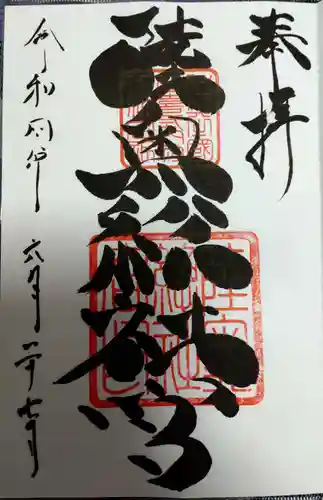 奉拝
陸奥總社宮
令和四年 六月二十七日